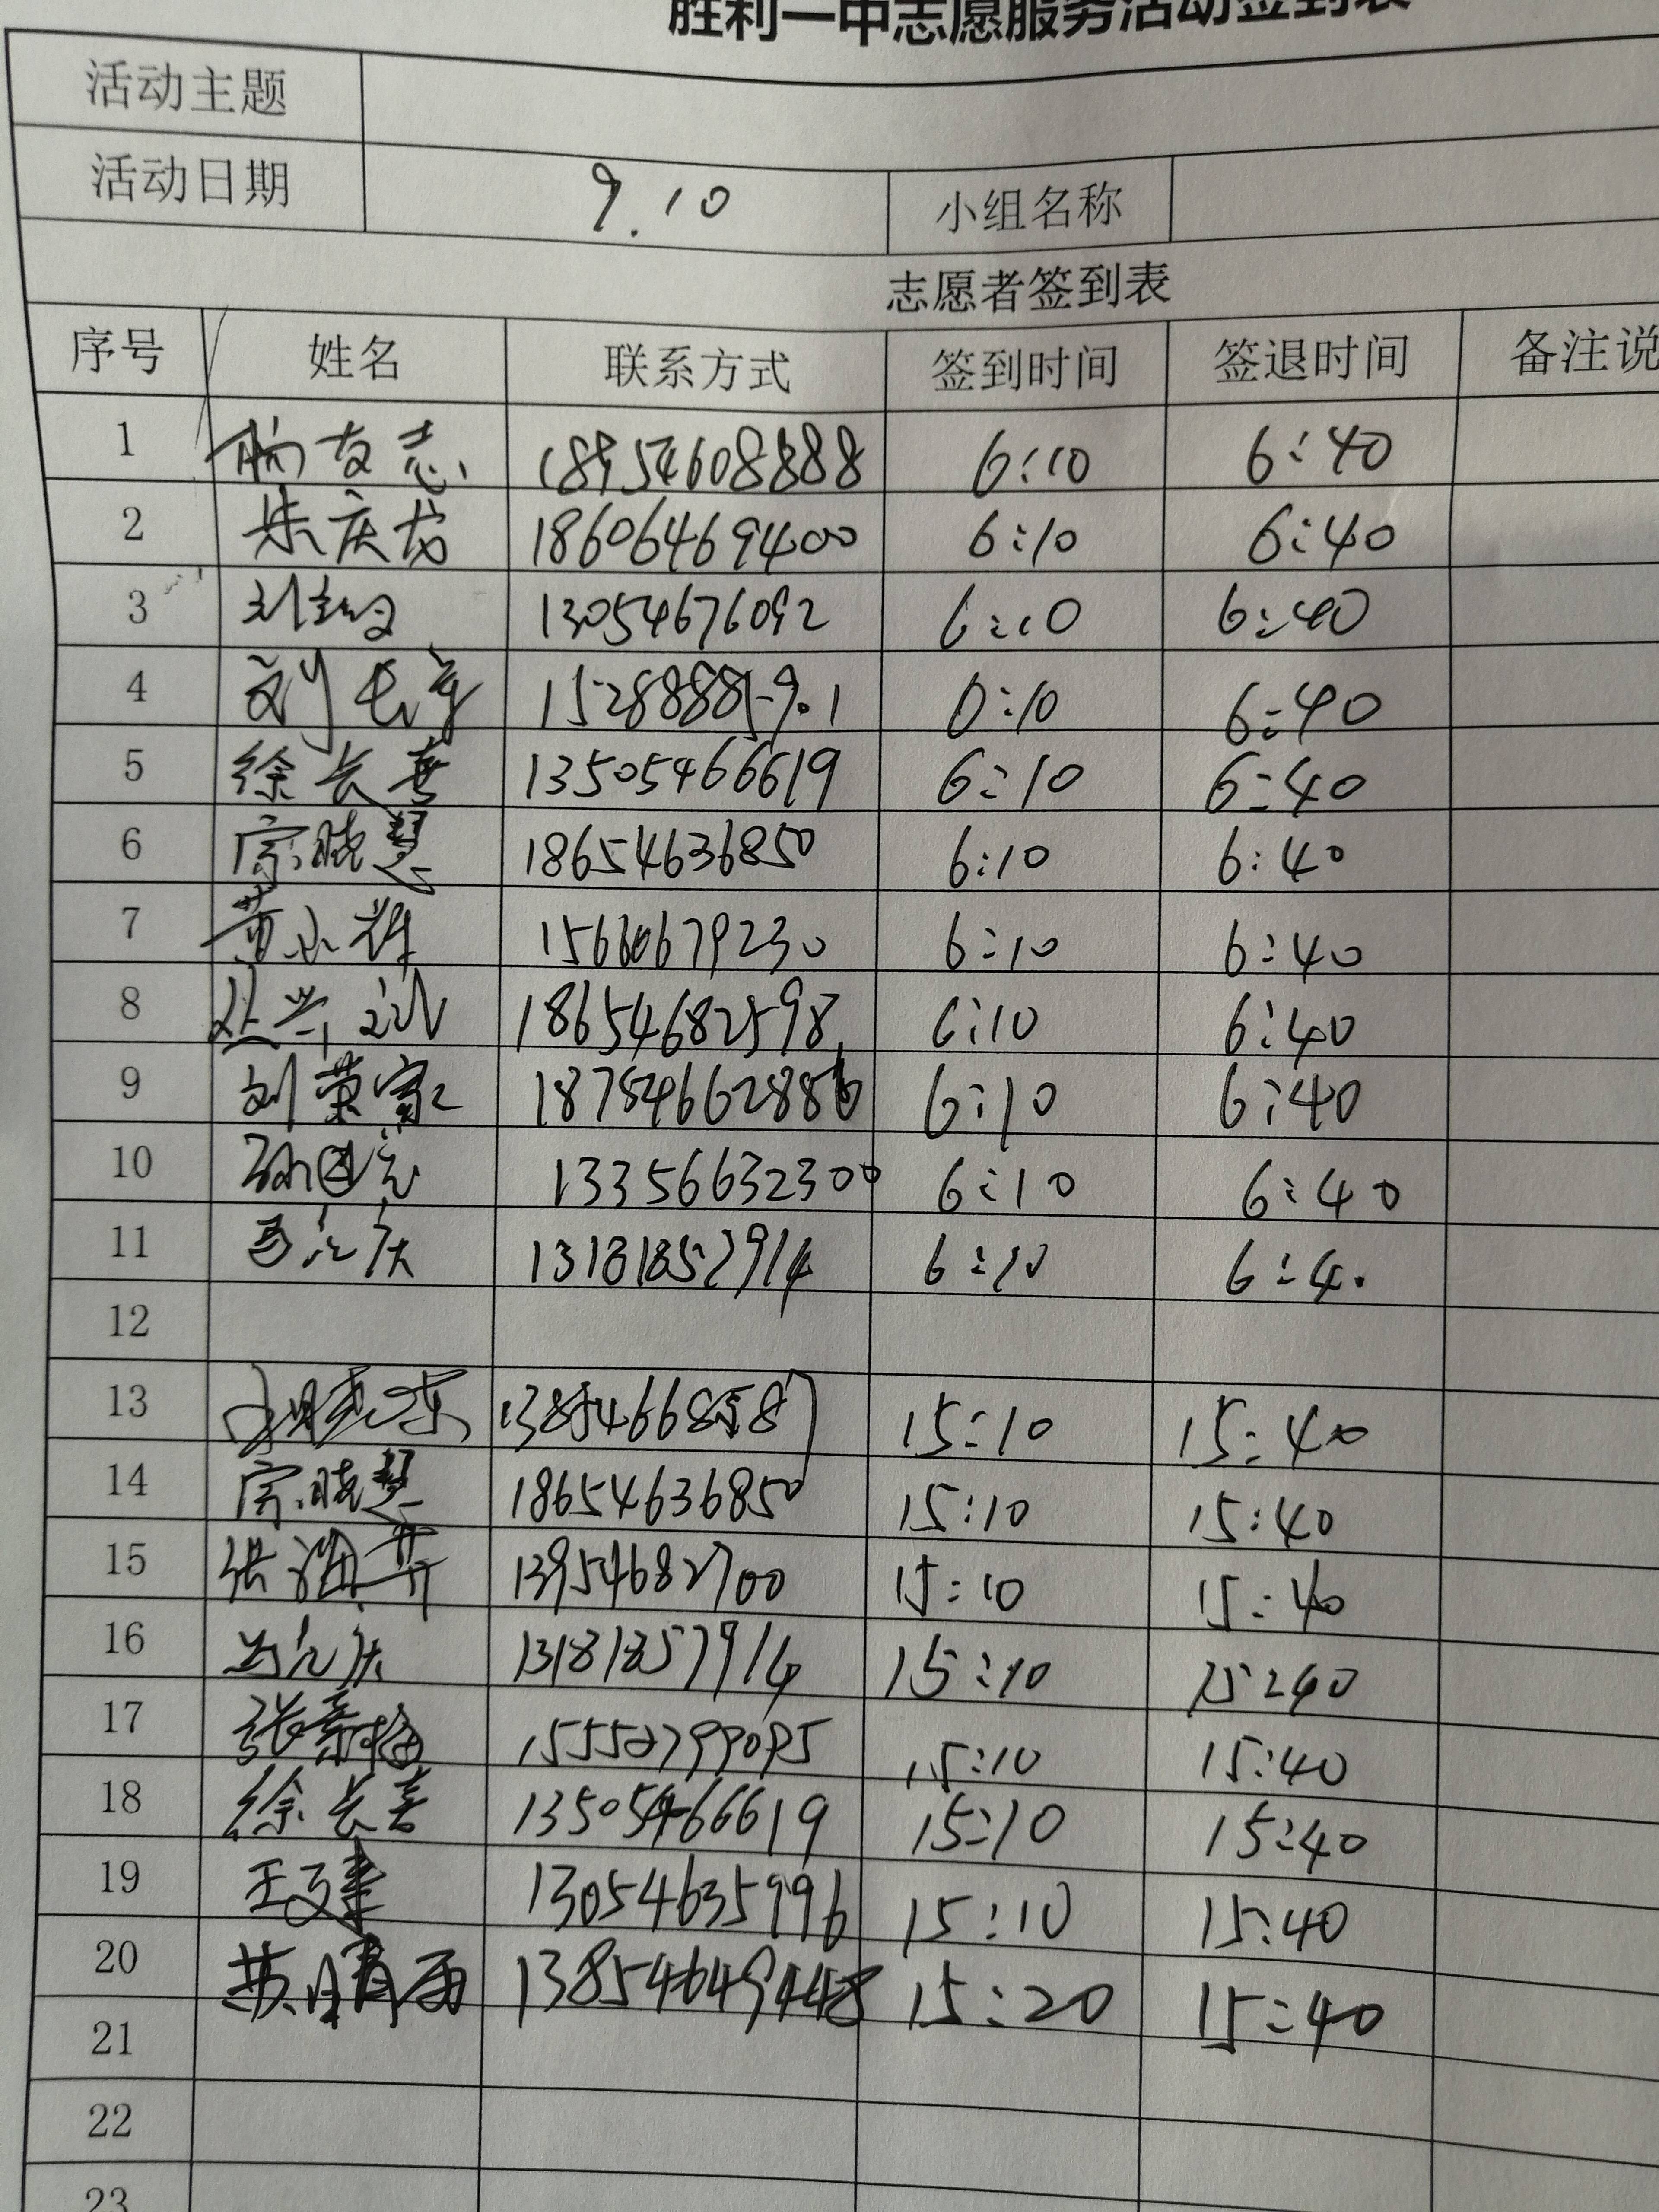 胜利一中志愿服务活动签到表
活动主题
活动日期 9.10 小组名称
志愿者签到表
序号 姓名 联系方式 签到时间 签退时间 备注说
1 友志 18954608888 6:10 6:40
2 朱庆龙 18606469400 6:10 6:40
3 刘 13054676092 6:10 6:40
4 刘 6:10 6:40
5 徐长春 13505466619 6:10 6:40
6 宗晓慧 18654636850 6:10 6:40
7 黄小辉 6:10 6:40
8 18654682598 6:10 6:40
9 刘荣家 6:10 6:40
10 孙国宏 13356632300 6:10 6:40
11 13181857914 6:10 6:4.
12
13 15:10 15:40
14 宗晓慧 18654636850 15:10 15:40
15 张海 13954682700 15:10 15:40
16 13181857914 15:10 15:40
17 张 15552799095 15:10 15:40
18 徐长春 13505466619 15:10 15:40
19 王建 13054635996 15:10 15:40
20 苏晴雨 13854649448 15:20 15:40
21
22
23